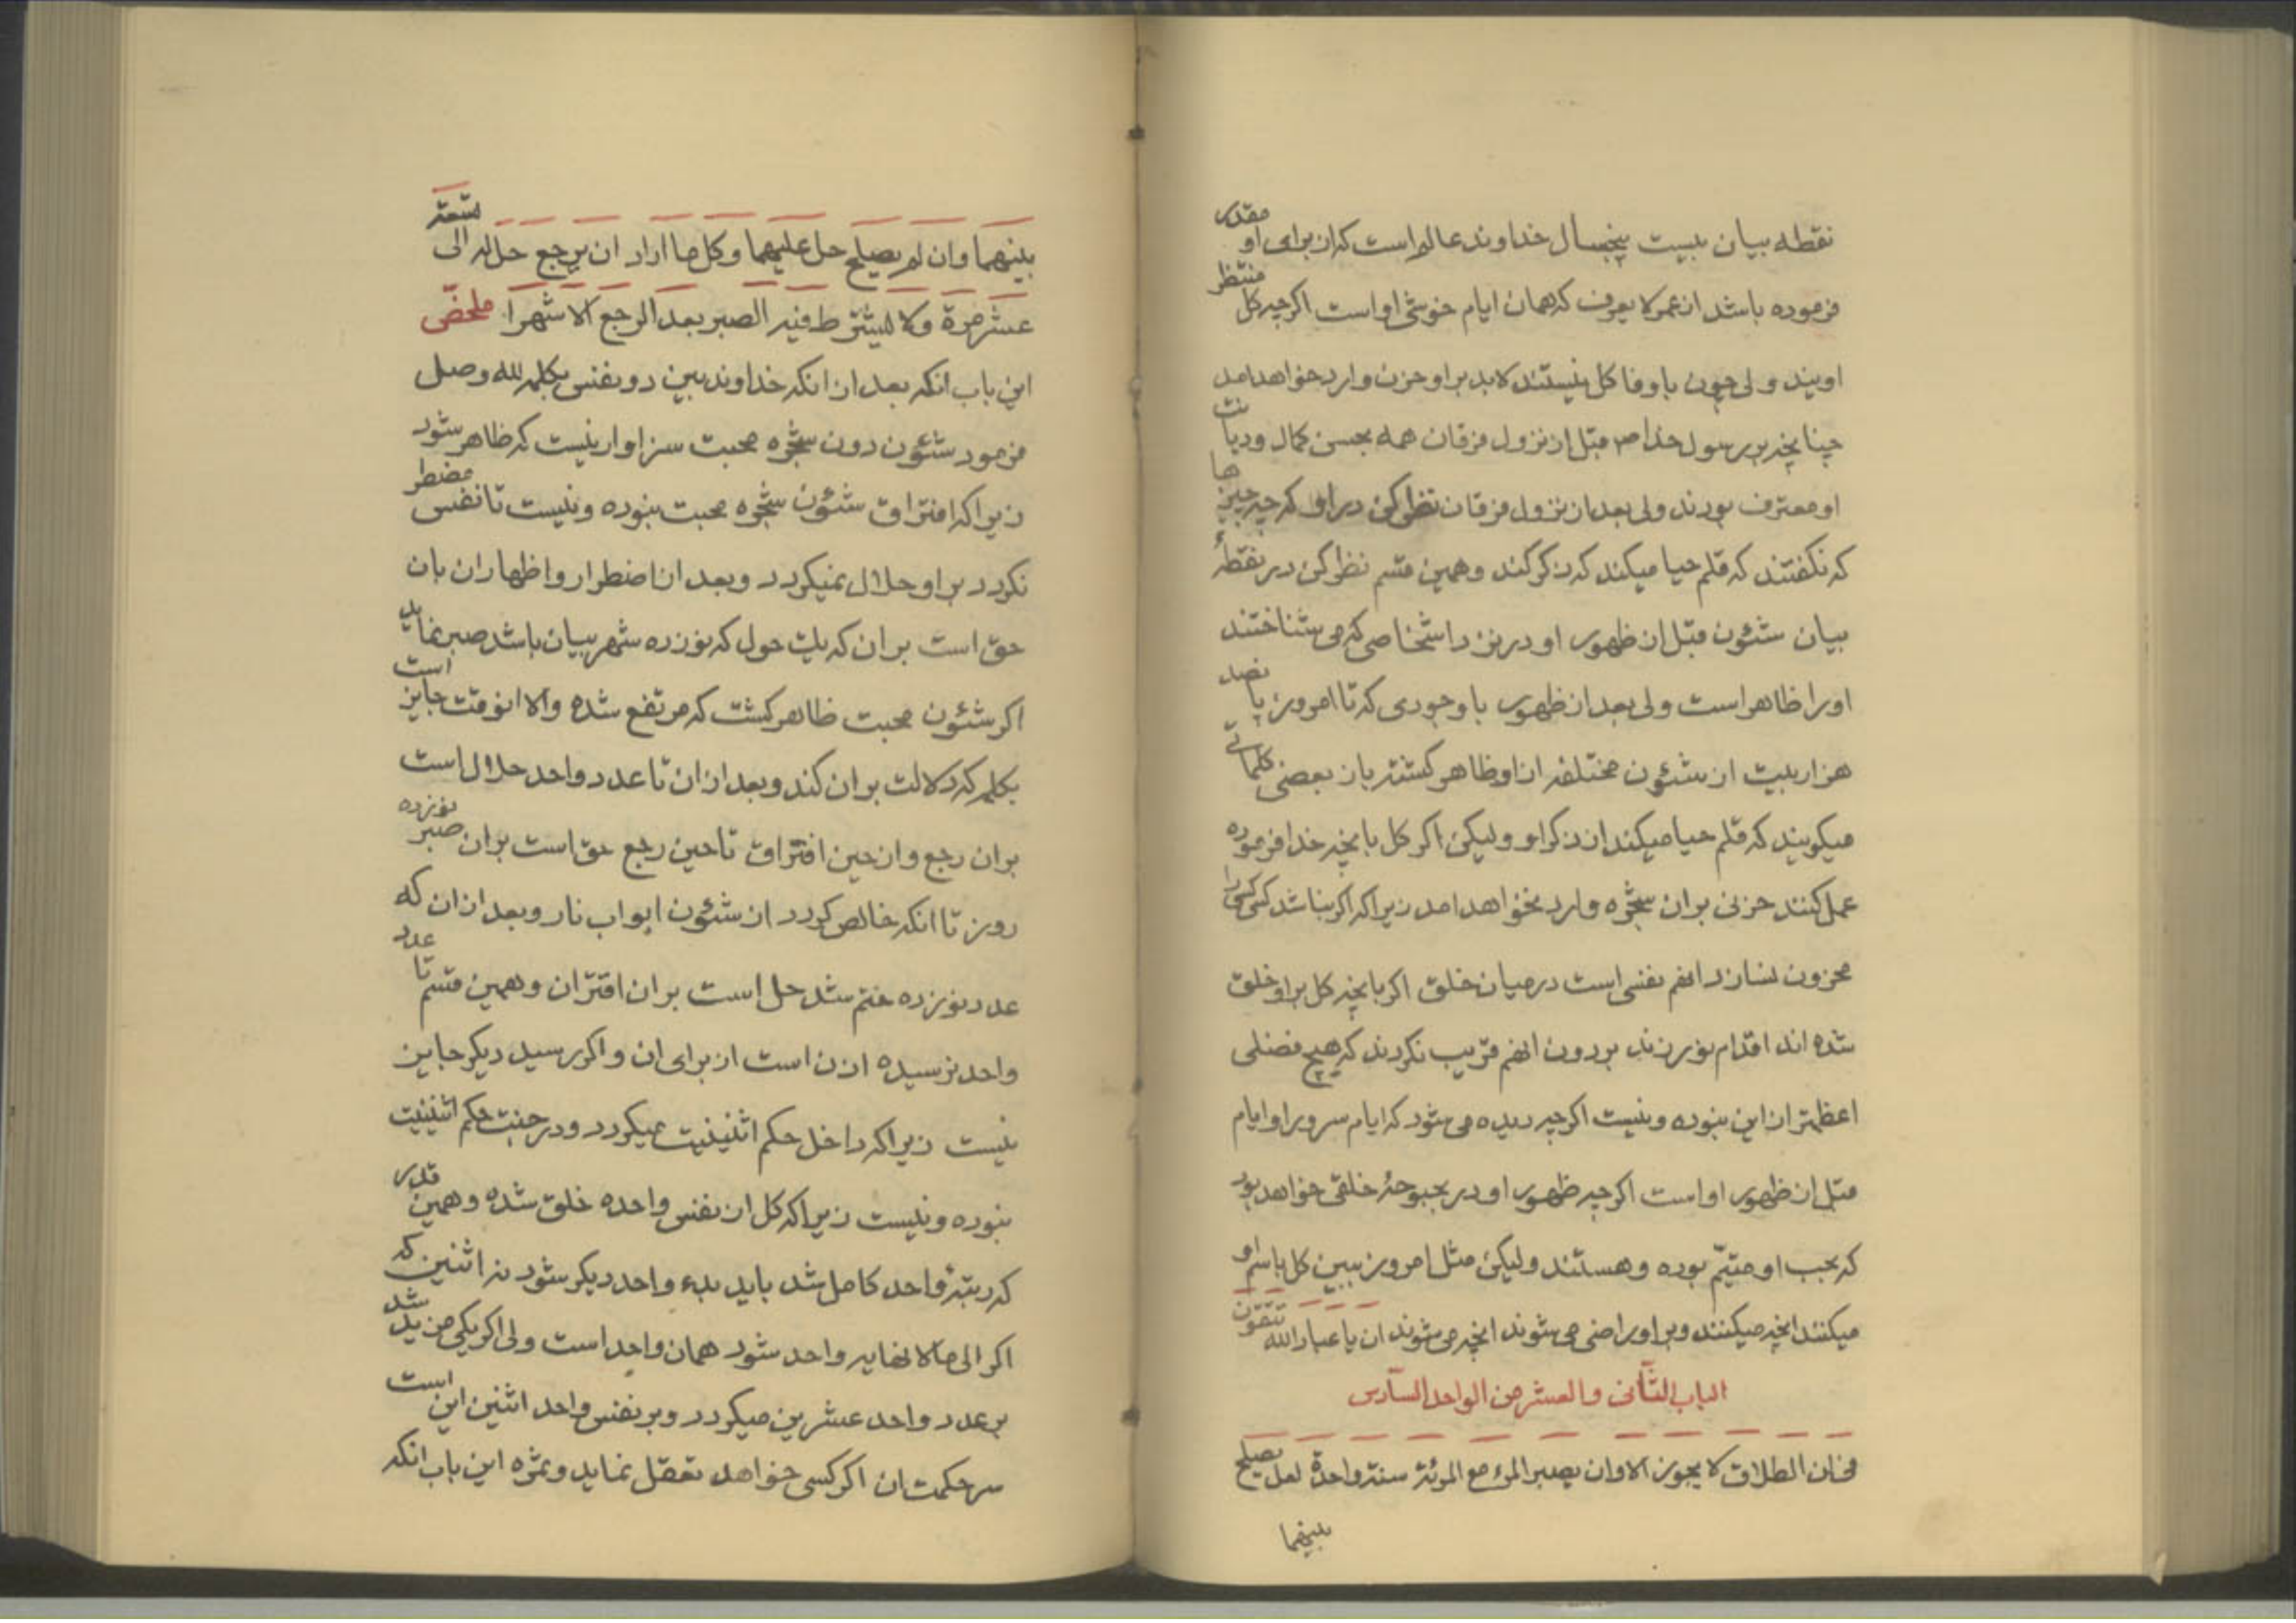 نقطه بیان بیست پنجسال خداوند عالم است که از برای او مقدر
فرموده باشد از عمر لا یعرف که همان ایام خوشی او است اگرچه کل منتظر
اویند ولی چون با وفا کل نیستند لابد بر او حزن وارد خواهد امد
چنانچه بر رسول خدا ص قبل از نزول فرقان همه بحسن کمال و دیانت
او معترف بودند ولی بعد از نزول فرقان نظر کن در او که چه چیزها
که نگفتند که قلم حیا میکند که ذکر کند و همین قسم نظر کن در نقطهٔ
بیان شئون قبل از ظهور او در نزد اشخاصی که می شناختند
او را ظاهر است ولی بعد از ظهور با وجودی که تا امروز پانصد
هزار بیت از شئون مختلفه از او ظاهر گشته باز بعضی کلماتی
میگویند که قلم حیا میکند از ذکر او ولیکن اگر کل بانچه خدا فرموده
عمل کنند حزنی بر ان شجره وارد نخواهد امد زیرا که اگر بنا شد کسی کسی را
محزون نسازد انهم نفسی است در میان خلق اگر بانچه کل بر او خلق
شده اند اقدام نورزند بر دون انهم قریب نگردند که هیچ فضلی
اعظمتر از این نبوده و نیست اگرچه دیده می شود که ایام سرور او ایام
قبل از ظهور او است اگرچه ظهور او در بحبوحهٔ خلقی خواهد بود
که بحب او متیّم بوده و هستند ولیکن مثل امروز ببین کل باسم او
میکنند انچه میکنند و بر او راضی می شوند انچه می شوند ان یا عباد الله تتقون
الباب الثانی و العشر من الواحد السادس
فی ان الطلاق لا یجوز الا و ان یصبر المرء مع المرئة سنة واحدة لعل یصلح
بینهما
بینهما و ان لم یصلح حل علیهما و کل ما اراد ان یرجع حل له الی تسعة
عشر مرة و لا لیشترط فیه الصبر بعد الرجع الا شهرا ملخص
این باب انکه بعد از انکه خداوند بین دو نفس بکلمه لله وصل
فرمود شئون دون شجره محبت سزاوار نیست که ظاهر شود
زیرا که افتراق شئون شجره محبت نبوده و نیست تا نفسی مضطر
نگردد بر او حلال نمیگردد و بعد از اضطرار و اظهار ان بان
حق است بر ان که یک حول که نوزده شهر بیان باشد صبر نماید
اگر شئون محبت ظاهر گشت که مرتفع شده و الا انوقت جایز است
بکلمه که دلالت بر ان کند و بعد از ان تا عدد واحد حلال است
بر ان رجع و از حین افتراق تا حین رجع حق است بر ان صبر نوزده
روز تا انکه خالص گردد از شئون ابواب نار و بعد از ان که
عدد نوزده ختم شد حل است بر ان اقتران و همین قسم تا عدد
واحد نرسیده اذن است از برای ان و اگر رسید دیگر جایز
نیست زیرا که داخل حکم اثنینیت میگردد و در جنت حکم اثنینیت
نبوده و نیست زیرا که کل از نفس واحده خلق شده و همین قدر
که رتبهٔ واحد کامل شد باید بدء واحد دیگر شود نه اثنین که
اگر الی ما لا نهایه واحد شود همان واحد است ولی اگر یکی مزید شد
بر عدد واحد عشرین میگردد و بر نفس واحد اثنین این است
سر حکمت ان اگر کسی خواهد تعقل نماید و ثمره این باب انکه